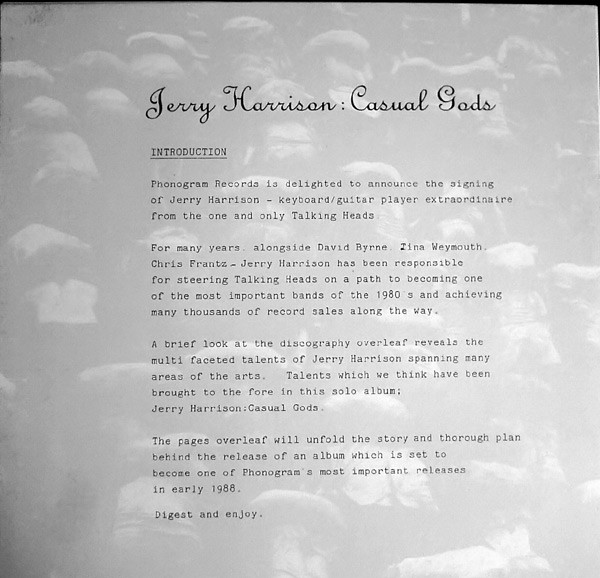 Jerry Harrison: Casual Gods
INTRODUCTION
Phonogram Records is delighted to announce the signing
of Jerry Harrison - keyboard/guitar player extraordinaire
from the one and only Talking Heads.
For many years, alongside David Byrne, Tina Weymouth,
Chris Frantz - Jerry Harrison has been responsible
for steering Talking Heads on a path to becoming one
of the most important bands of the 1980's and achieving
many thousands of record sales along the way.
A brief look at the discography overleaf reveals the
multi faceted talents of Jerry Harrison spanning many
areas of the arts. Talents which we think have been
brought to the fore in this solo album;
Jerry Harrison:Casual Gods.
The pages overleaf will unfold the story and thorough plan
behind the release of an album which is set to
become one of Phonogram's most important releases
in early 1988.
Digest and enjoy.